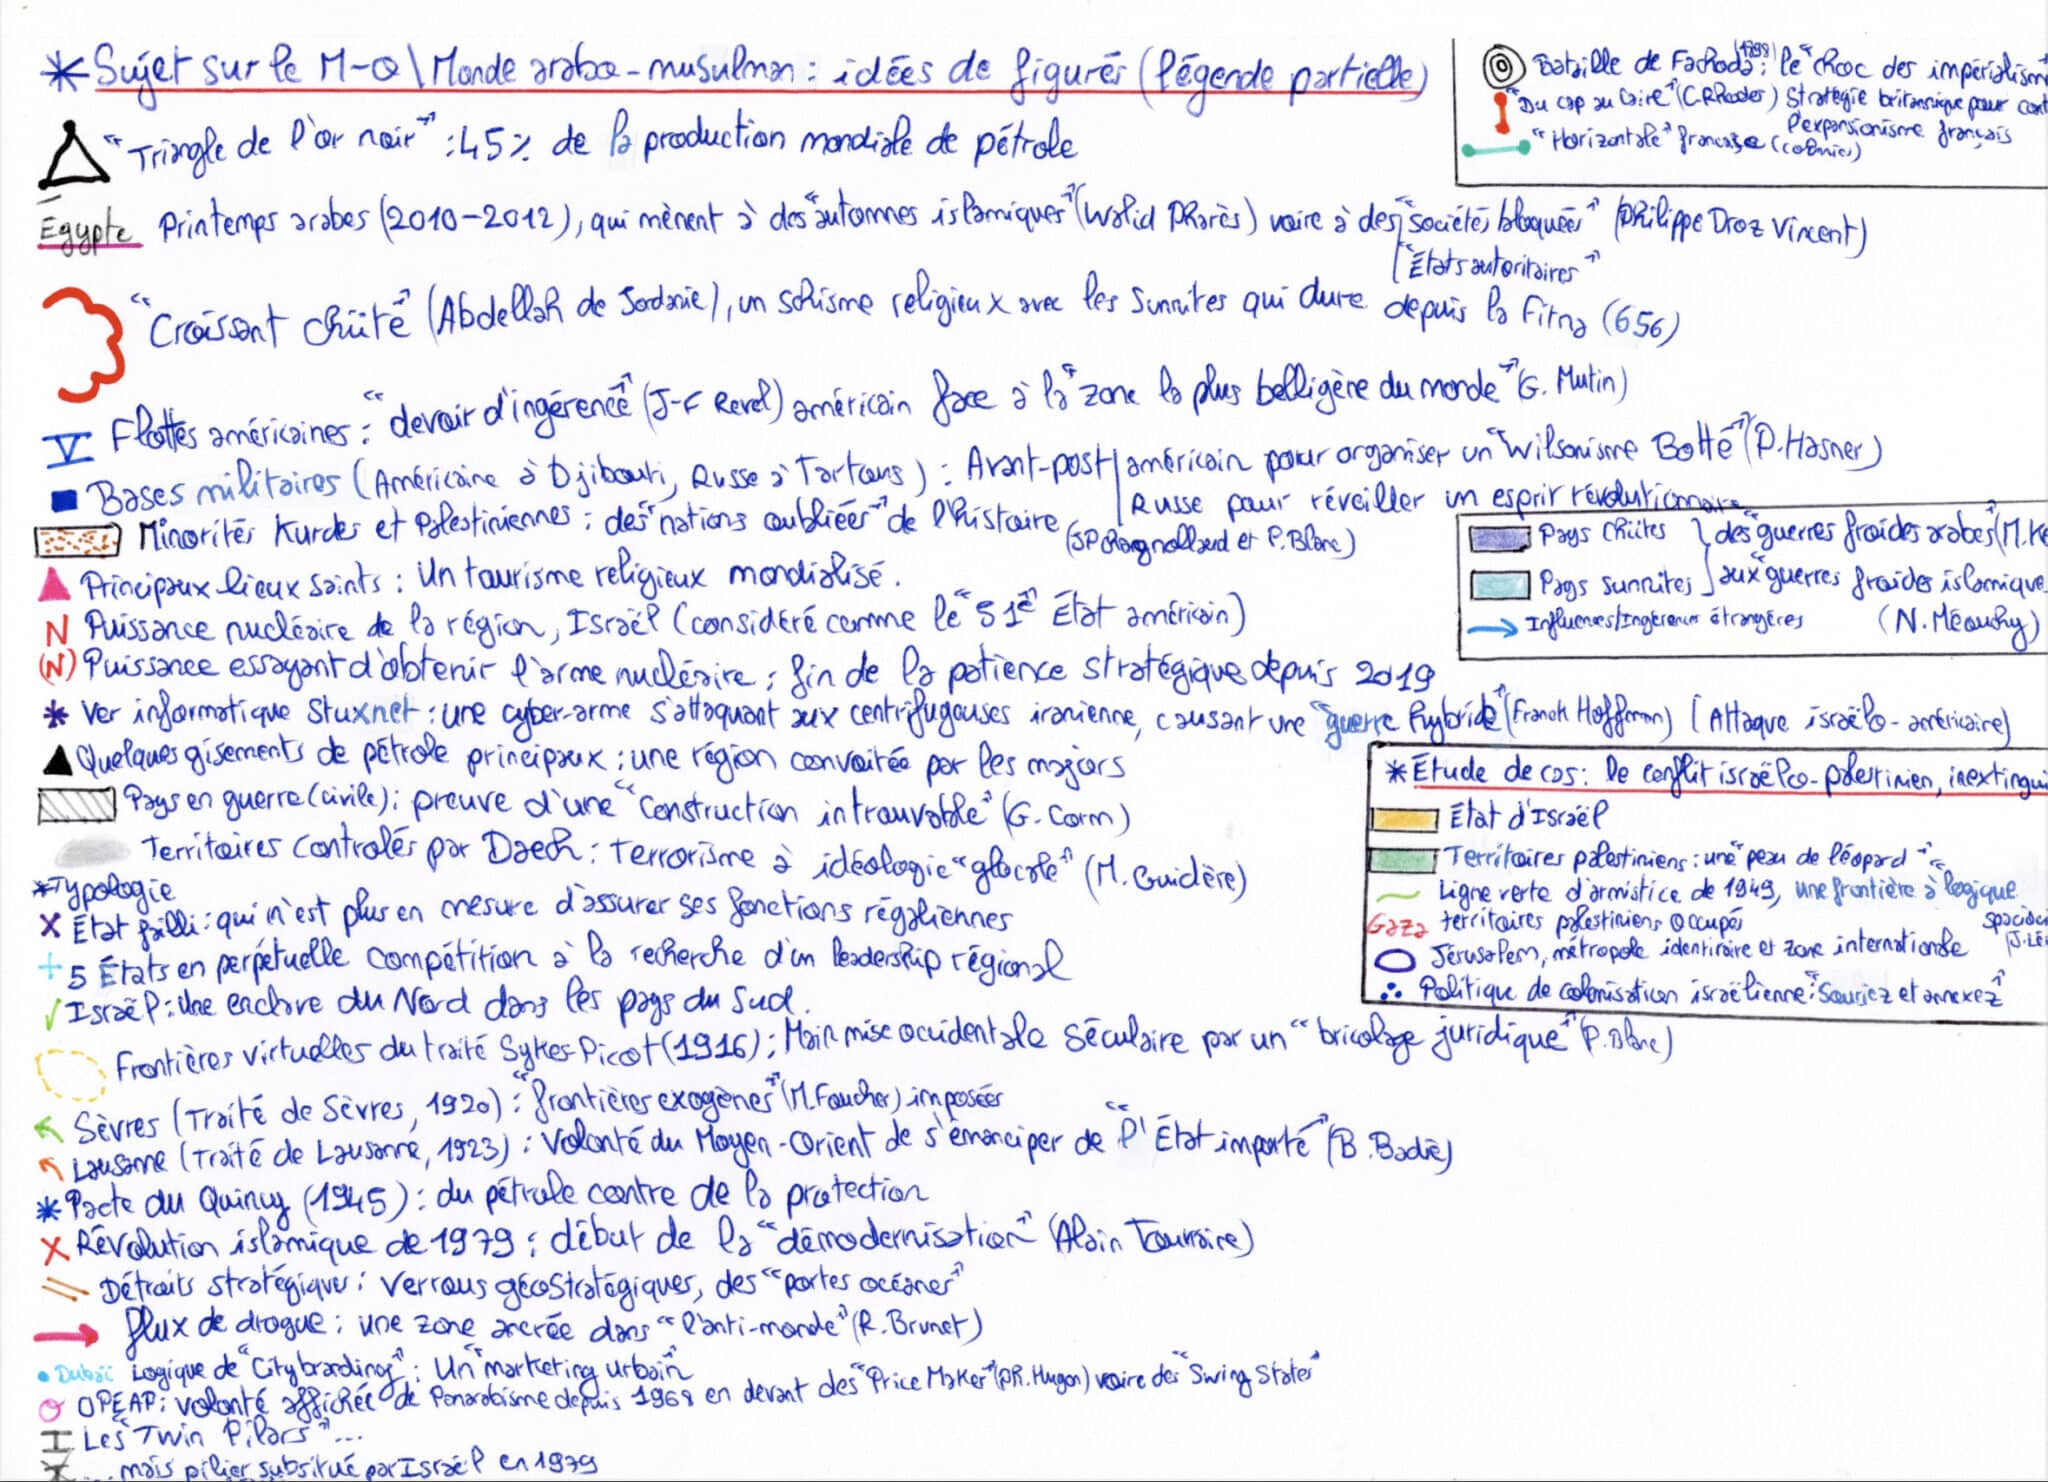 * Sujet sur le M-O \ Monde arabo-musulman : idées de figurés (légende partielle)
"Triangle de l'or noir" : 45% de la production mondiale de pétrole
Egypte Printemps arabes (2010-2012), qui mènent à des "automnes islamiques" (Walid Pharès) voire à des "sociétés bloquées" (Philippe Droz Vincent)
"États autoritaires"
"Croissant chiite" (Abdellah de Jordanie), un schisme religieux avec les Sunnites qui dure depuis la Fitna (656)
Flottes américaines : "devoir d'ingérence" (J-F Revel) américain face à la "zone la plus belligène du monde" (G. Mutin)
Bases militaires (Américaine à Djibouti, Russe à Tartous) : Avant-post américain pour organiser un "Wilsonisme Botté" (P. Hasner)
Russe pour réveiller un esprit révolutionnaire
Minorités Kurdes et Palestiniennes : des "nations oubliées" de l'histoire
(JP Chagnollaud et P. Blanc)
Principaux lieux saints : Un tourisme religieux mondialisé.
N Puissance nucléaire de la région, Israël (considéré comme le "51e État américain)
(N) Puissance essayant d'obtenir l'arme nucléaire : fin de la patience stratégique depuis 2019
* Ver informatique Stuxnet : une cyber-arme s'attaquant aux centrifugeuses iranienne, causant une "guerre hybride" (Franck Hoffman) (Attaque israëlo-américaine)
Quelques gisements de pétrole principaux : une région convoitée par les majors
Pays en guerre (civile) : preuve d'une "construction introuvable" (G. Corm)
Territoires controlés par Daech : terrorisme à idéologie "glocale" (M. Guidère)
*Typologie
X État failli : qui n'est plus en mesure d'assurer ses fonctions régaliennes
+ 5 États en perpétuelle compétition à la recherche d'un leadership régional
Israël : Une enclave du Nord dans les pays du Sud.
Frontières virtuelles du traité Sykes-Picot (1916) : Main mise occidentale séculaire par un "bricolage juridique" (P. Blanc)
Sèvres (Traité de Sèvres, 1920) : "frontières exogènes" (M. Foucher) imposées
Lausanne (Traité de Lausanne, 1923) : Volonté du Moyen-Orient de s'émanciper de "l'État importé" (B. Badie)
* Pacte du Quincy (1945) : du pétrole contre de la protection
X Révolution islamique de 1979 : début de la "démodernisation" (Alain Touraine)
Détroits stratégiques : verrous géostratégiques, des "portes océanes"
flux de drogue : une zone ancrée dans "l'anti-monde" (R. Brunet)
Dubaï Logique de "City branding" : Un "marketing urbain"
OPEAP : volonté affichée de Panarabisme depuis 1968 en devant des "Price Maker" (PR. Hugon) voire des "Swing States"
Les "Twin Pilars" ...
... mais pilier substitué par Israël en 1979
Bataille de Fachoda (1898) : le "choc des impérialism
"Du cap au Caire" (C. Rhodes) Stratégie britannique pour cont
l'expansionisme français
"Horizontale" française (colonies)
Pays chiites
Pays sunnites
des "guerres froides arabes" (M. Ke
aux "guerres froides islamique
Influences/Ingérences étrangères
(N. Méouchy)
* Étude de cas : le conflit israëlo-palestinien, inextingui
État d'Israël
Territoires palestiniens : une "peau de léopard"
Ligne verte d'armistice de 1949, une frontière à "logique
Gaza territoires palestiniens occupés
Jérusalem, métropole identitaire et zone internationale
Politique de colonisation israëlienne : "Souriez et annexez"